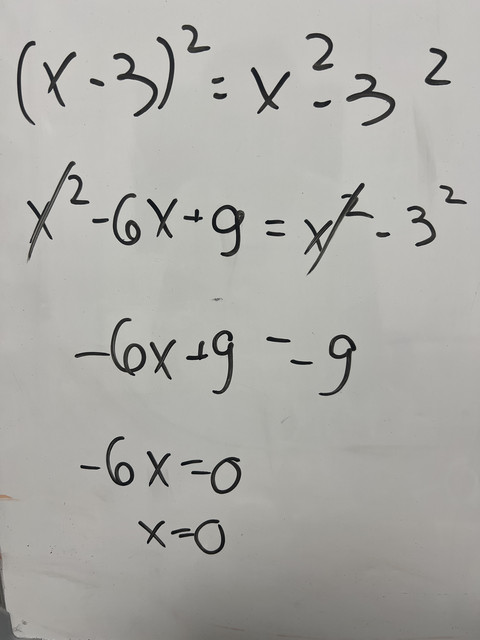 (x - 3)² = x² - 3²
x² - 6x + 9 = x² - 3²
-6x + 9 = -9
-6x = 0
x = 0